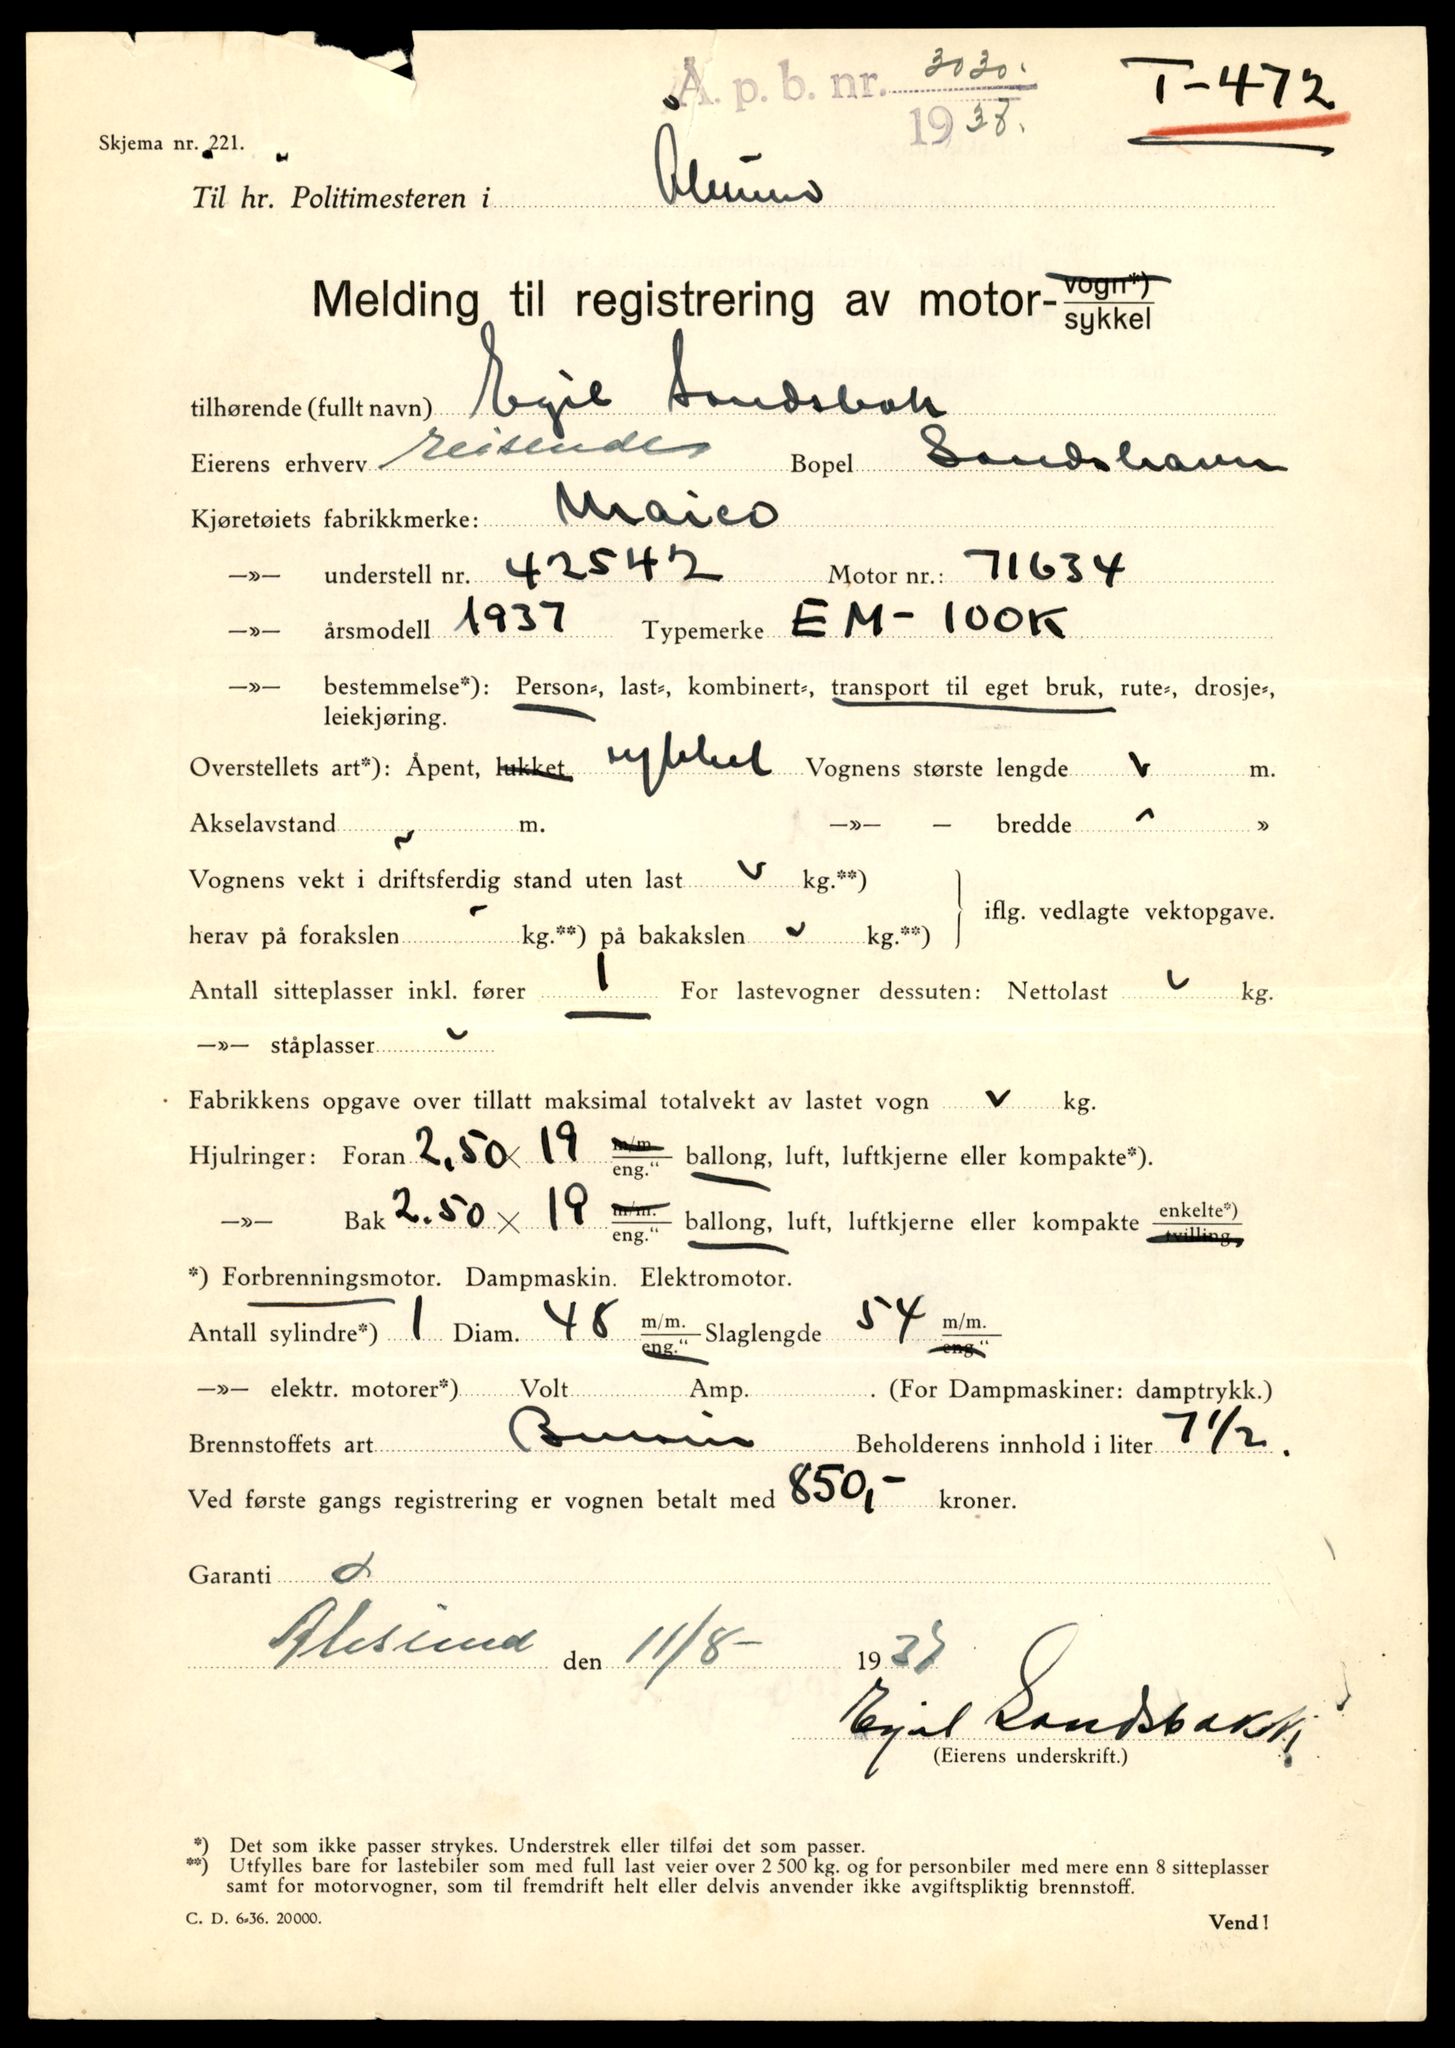 Å. p. b. nr. 3030.
1938.
T-472
Skjema nr. 221.
Til hr. Politimesteren i Ålesund
Melding til registrering av motor- vogn*) sykkel
tilhørende (fullt navn) Egil Sandsbak
Eierens erhverv reisende Bopel Sandshavn
Kjøretøiets fabrikkmerke: Maico
—»— understell nr. 42542 Motor nr.: 71634
—»— årsmodell 1937 Typemerke EM-100K
—»— bestemmelse*): Person-, last-, kombinert-, transport til eget bruk, rute-, drosje-,
leiekjøring.
Overstellets art*): Åpent, lukket sykkel Vognens største lengde m.
Akselavstand m. —»— — bredde »
Vognens vekt i driftsferdig stand uten last kg.**)
iflg. vedlagte vektopgave.
herav på forakslen kg.**) på bakakslen kg.**)
Antall sitteplasser inkl. fører 1 For lastevogner dessuten: Nettolast kg.
—»— ståplasser
Fabrikkens opgave over tillatt maksimal totalvekt av lastet vogn kg.
Hjulringer: Foran 2,50 × 19 m/m eng." ballong, luft, luftkjerne eller kompakte*).
—»— Bak 2.50 × 19 m/m. eng." ballong, luft, luftkjerne eller kompakte enkelte*) tvilling.
*) Forbrenningsmotor. Dampmaskin. Elektromotor.
Antall sylindre*) 1 Diam. 48 m/m. eng." Slaglengde 54 m/m. eng."
—»— elektr. motorer*) Volt Amp. . (For Dampmaskiner: damptrykk.)
Brennstoffets art Bensin Beholderens innhold i liter 7 1/2.
Ved første gangs registrering er vognen betalt med 850,- kroner.
Garanti
Ålesund den 11/8- 193
Egil Sandsbakk
(Eierens underskrift.)
*) Det som ikke passer strykes. Understrek eller tilføi det som passer.
**) Utfylles bare for lastebiler som med full last veier over 2 500 kg. og for personbiler med mere enn 8 sitteplasser
samt for motorvogner, som til fremdrift helt eller delvis anvender ikke avgiftspliktig brennstoff.
C. D. 6-36. 20000.
Vend!